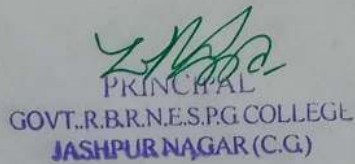 PRINCIPAL
GOVT.,R.B.R.N.E.S.P.G COLLEGE
JASHPUR NAGAR (C.G.)